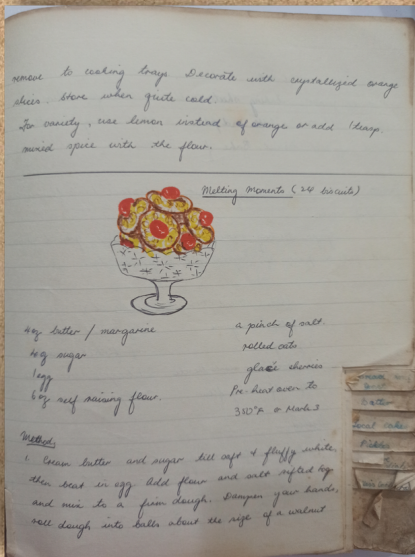 remove to cooling trays Decorate with crystallized orange
slices. Store when quite cold.
For variety, use lemon instead of orange or add 1 teasp.
mixed spice with the flour.
Melting Moments (24 biscuits)
4 oz butter / margarine
4 oz sugar
1 egg
5 oz self raising flour.
a pinch of salt.
rolled oats.
glacé cherries
Pre-heat oven to
350°F or Mark 3
Method:
1. Cream butter and sugar till soft & fluffy white,
then beat in egg. Add flour and salt sifted tog
and mix to a firm dough. Dampen your hands,
roll dough into balls about the size of a walnut
Batter
Local cake
Pickles